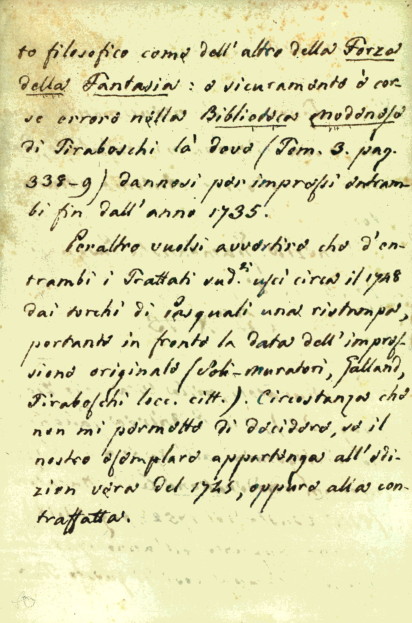 to filosofico come dell' altro della Forza
della Fantasia : e sicuramente è cor-
se errore nella Biblioteca modenese
di Tiraboschi là dove (Tom. 3. pag.
338-9) dannosi per impressi entram-
bi fin dall' anno 1735.
Peraltro vuolsi avvertire che d' en-
trambi i Trattati sud.ti uscì circa il 1748
dai torchi di Pasquali una ristampa,
portante in fronte la data dell' impres-
sione originale (Soli-muratori, Galland,
Tiraboschi locc. citt.). Circostanza che
non mi permette di decidere, se il
nostro esemplare appartenga all' edi-
zion vera del 1745, oppure alla con-
traffatta.